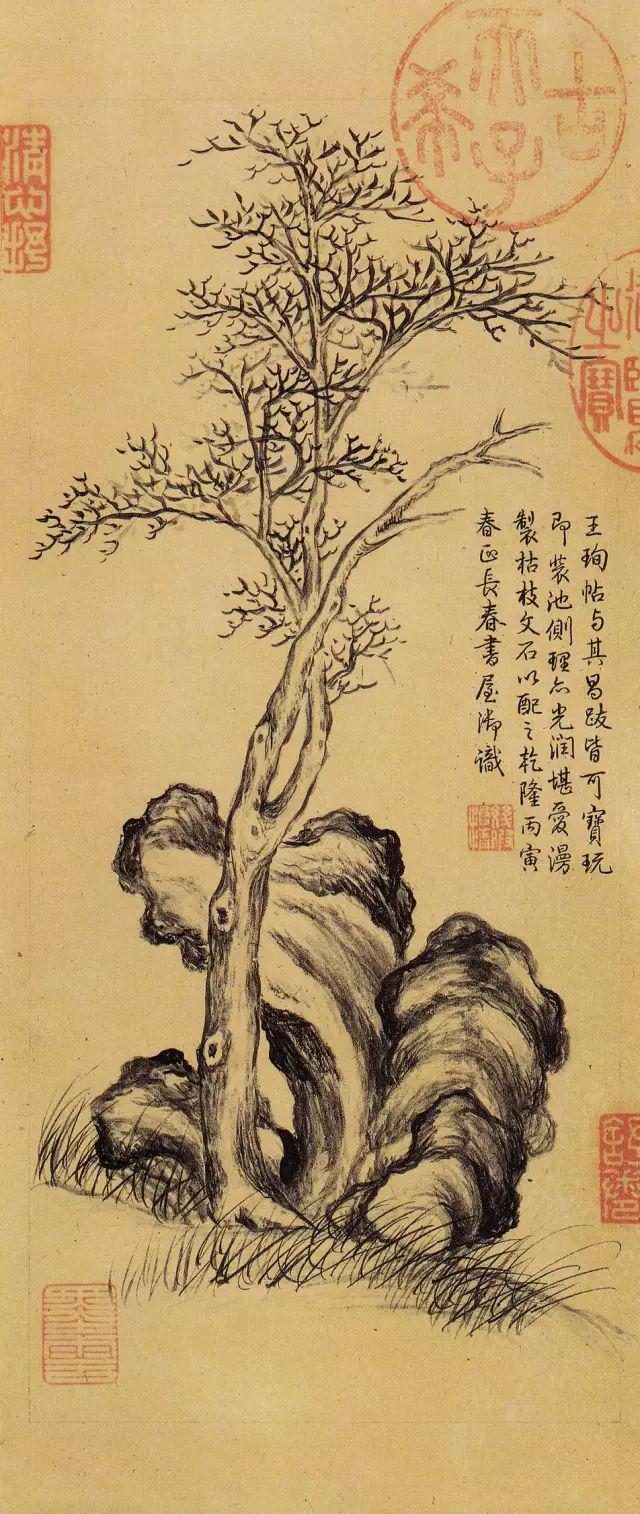 王珣帖与其昌跋皆可寶玩
即裝池側理亦光潤堪愛漫
製枯枝文石以配之乾隆丙寅
春正長春書屋御識
古
稀
天子